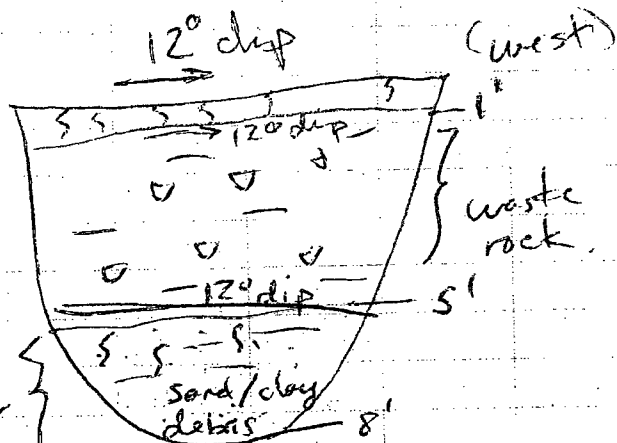 12° dip
(west)
1'
12° dip
waste
rock.
12° dip
5'
sand/clay
debris
8'